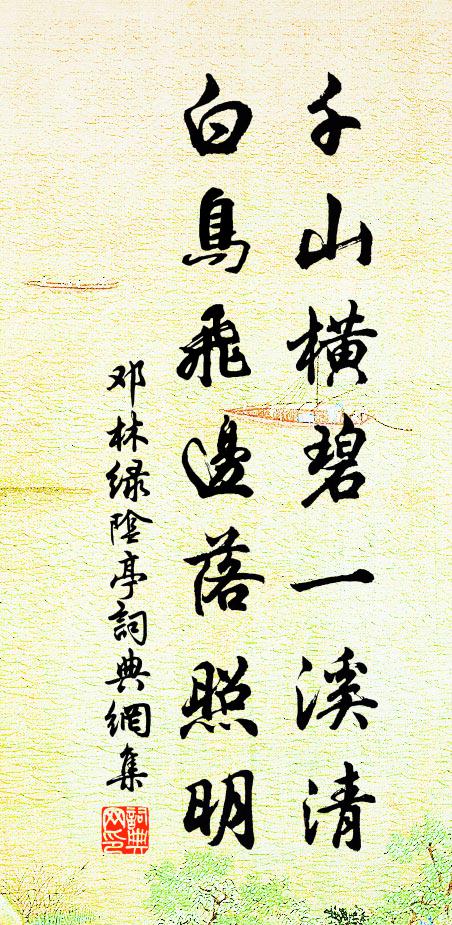 千山橫碧一溪清
白鳥飛邊落照明
邓林绿陰亭詞典網集
詞典網印